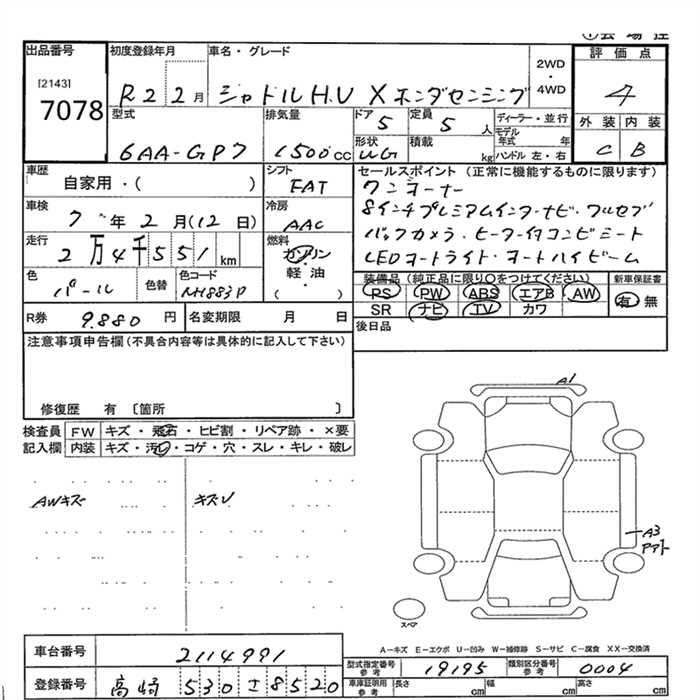 出品番号
[2143]
7078
初度登録年月
R2 2月
車名・グレード
シャトルH.V X ホンダセンシング
2WD
・
4WD
評価点
4
外装 内装
C B
型式
6AA-GP7
排気量
1500cc
ドア
5
形状
WG
定員
5人
積載
kg
ディーラー・並行
モデル年式 年
ハンドル 左・右
車歴
自家用・( )
車検
7年2月(12日)
走行
2万4千551km
色
パール
色替
色コード
NH883P
シフト
FAT
冷房
AAC
燃料
ガソリン
軽油
・
( )
セールスポイント(正常に機能するものに限ります)
ワンオーナー
8インチプレミアムインターナビ・フルセグ
バックカメラ・ヒーター付コンビシート
LEDオートライト・オートハイビーム
装備品(純正品に限り○をつけてください)
PS PW ABS エアB AW
SR ナビ TV カワ
新車保証書
有 無
後日品
R券 9.880円
名変期限 月 日
注意事項申告欄(不具合内容等は具体的に記入して下さい)
修復歴 有 〔箇所 〕
検査員記入欄
FW キズ・飛石・ヒビ割・リペア跡・×要
内装 キズ・汚れ・コゲ・穴・スレ・キレ・破レ
AWキズ
キズU
A1
A3
スペア
A−キズ E−エクボ U−凹み W−補修跡 S−サビ C−腐食 XX−交換済
車台番号 2114991
登録番号 高崎 530 さ 8520
型式指定番号 参考 19195
類別区分番号 参考 0004
車庫証明用 参考 長さ cm 幅 cm 高さ cm